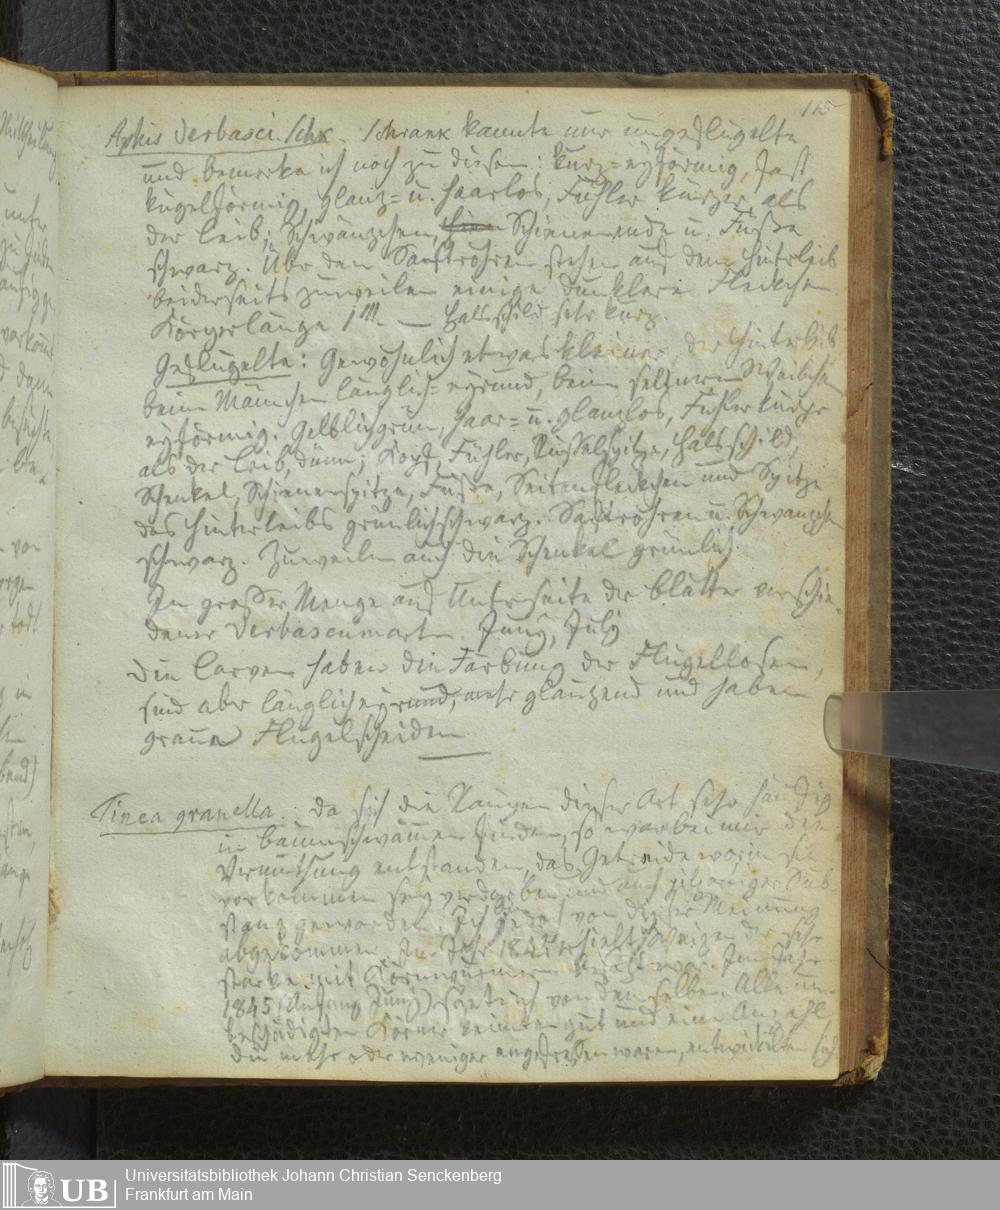 115
Aphis Verbasci Schk. Schrank kannte nur ungeflügelte
und bemerke ich noch zu diesen: kurz=eyförmig, fast
kugelförmig, glanz= u. haarlos, Fühler kürzer als
der Leib; Schwänzchen, Schienenende u. Füße
schwarz. Über den Saftröhren stehen auf dem Hinterleib
beiderseits zuweilen einige dunklere Fleckchen.
Körperlänge 1'''. — Halsschild sehr kurz.
Geflügelte: Gewöhnlich etwas kleiner, der Hinterleib
beim Mänchen länglich=eyrund, beim seltnern Weibchen
eyförmig. Gelblichgrün, haar= u. glanzlos, Fühler kürzer
als der Leib, dünn; Kopf, Fühler, Rüsselspitze, Halsschild,
Schenkel, Schienenspitze, Füße, Seitenfleckchen und Spitze
des Hinterleibs grünlichschwarz. Saftröhren u. Schwänzchen
schwarz. Zuweilen auch die Schenkel grünlich.
In großer Menge auf Unterseite der Blätter verschie-
dener Verbascumarten. Juny, July
Die Larven haben die Färbung der Flügellosen,
sind aber länglicheyrund, mehr glänzend und haben
graue Flügelscheiden.
Tinea granella. Da sich die Raupen dieser Art sehr häufig
in Baumschwämen finden, so war bei mir die
Vermuthung entstanden, das Getreide worin sie
vorkommen sey verdorben und auch
stanz geworden. Ich bin jedoch von dieser Meinung
abgekommen. Im Jahr 184 erhielt ich Weizen der sehr
starke mit Kornwürmern besetzt war. Im Jahr
1845 (Anfang Juny) säete ich von demselben. Alle un-
beschädigten Körner keimten gut und eine Anzahl
die mehr oder weniger angefressen waren, entwickelten sich
Universitätsbibliothek Johann Christian Senckenberg
UB Frankfurt am Main